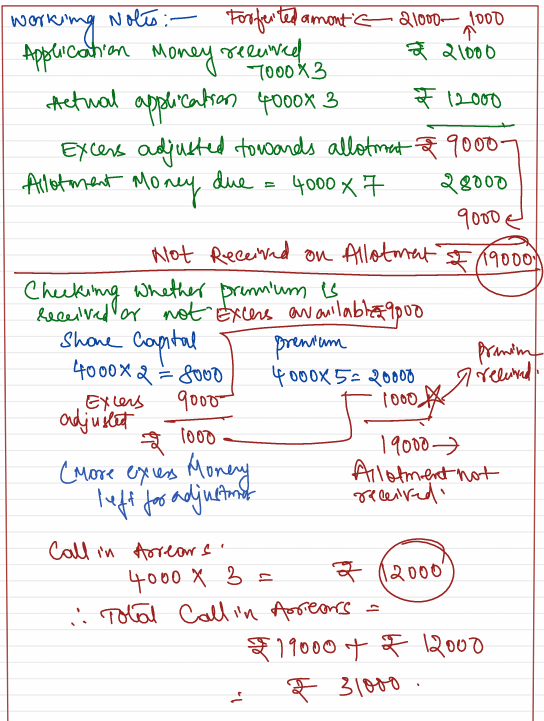 Working Notes:— Forfeited amont:— 21000 — 1000
Application Money received ₹ 21000
7000 × 3
Actual application 4000 × 3 ₹ 12000
Excess adjusted towards allotment ₹ 9000
Allotment Money due = 4000 × 7 28000
9000
Not Received on Allotment ₹ 19000
Checking whether premium is
received or not Excess available ₹9000
Share Capital premium
4000 × 2 = 8000 4000 × 5 = 20000
premium received.
Excess adjusted 9000 1000
₹ 1000 19000 →
(More excess Money Allotment not
left for adjustment received.
Call in Arrears.
4000 × 3 = ₹ 12000
∴ Total Call in Arrears =
₹ 19000 + ₹ 12000
= ₹ 31000.